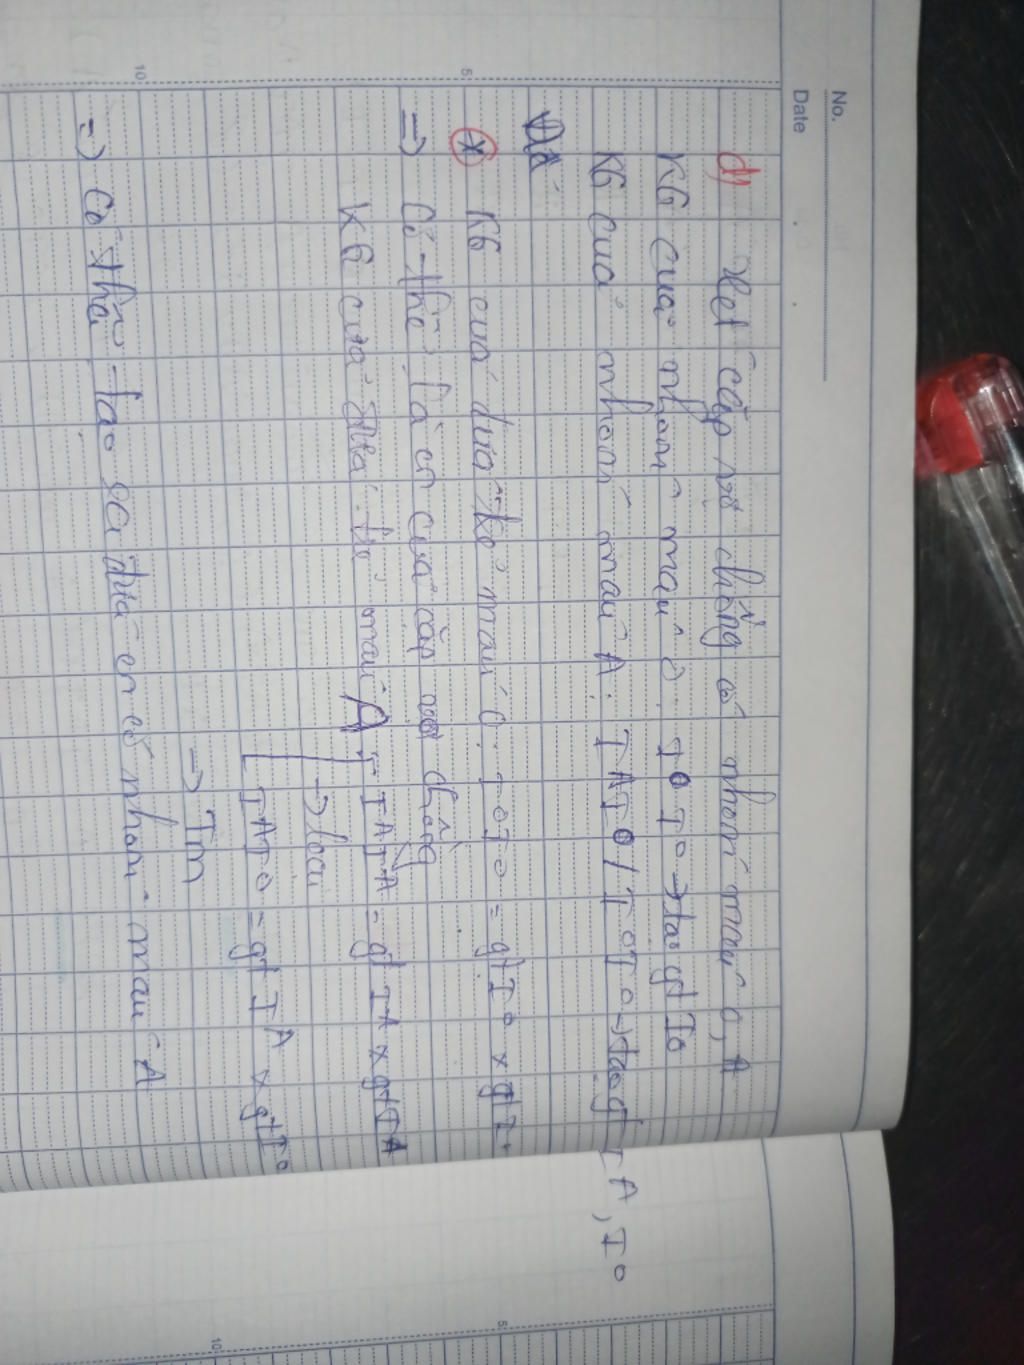 No.
Date
d) Xét cặp vợ chồng có nhóm máu O, A
KG của nhóm máu O: I⁰I⁰ → tạo gt I⁰
KG của nhóm máu A: IᴬI⁰ / I⁰I⁰ → tạo gt Iᴬ, I⁰
(*) KG của đứa trẻ máu O: I⁰I⁰ = gt I⁰ x gt I⁰
=) Có thể là con của cặp vợ chồng
KG của đứa trẻ máu A: IᴬIᴬ = gt Iᴬ x gt Iᴬ
→ loại
IᴬI⁰ = gt Iᴬ x gt I⁰
=) Tm
=) Có thể tạo ra đứa con có nhóm máu A
5
10
5
10